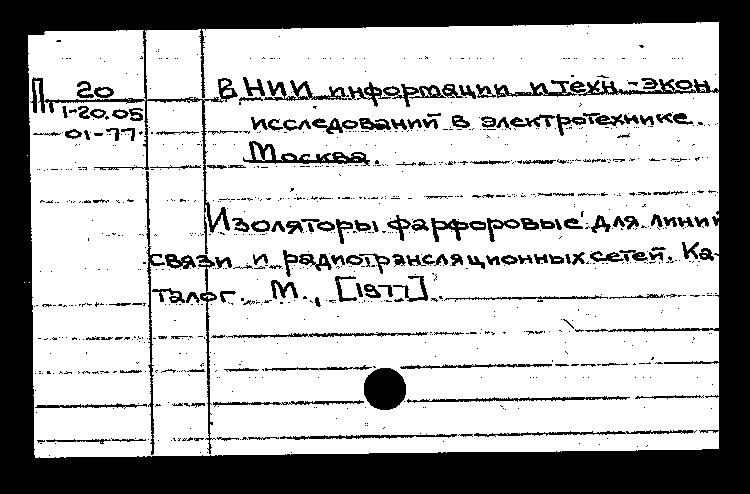 П 20
1-20.05
01-77.
ВНИИ информации и техн.-экон.
исследований в электротехнике.
Москва.
Изоляторы фарфоровые для линий
связи и радиотрансляционных сетей. Ка-
талог. М., [1977].